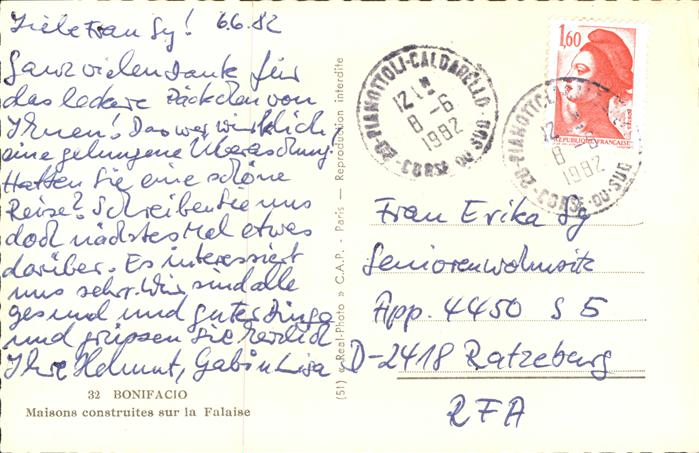 Liebe Frau Sy! 6.6.82
Ganz vielen Dank für
das leckere Päckchen von
Ihnen! Das war wirklich
eine gelungene Überaschung!
Hatten Sie eine schöne
Reise? Schreiben Sie uns
doch nächstes Mal etwas
darüber. Es interessiert
uns sehr. Wir sind alle
gesund und guter Dinge
und grüssen Sie herzlich
Ihre Helmut, Gabi u Lisa
32 BONIFACIO
Maisons construites sur la Falaise
(51) « Real-Photo » C.A.P. - Paris — Reproduction interdite
20-PIANOTTOLI-CALDARELLO
12 H
8 -6
1982
CORSE-DU-SUD
20-PIANOTTOLI
12 H
8 -6
1982
CORSE-DU-SUD
1,60
REPUBLIQUE FRANCAISE
Frau Erika Sy
Seniorenwohnsitz
App. 4450 S 5
D-2418 Ratzeburg
RFA